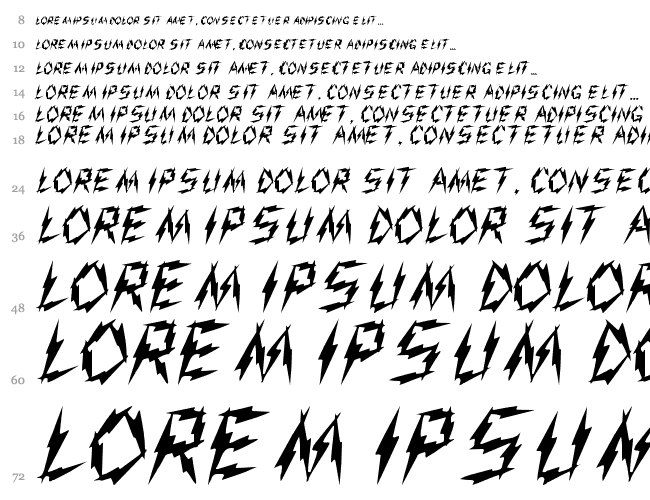 8 LOREM IPSUM DOLOR SIT AMET, CONSECTETUER ADIPISCING ELIT...
10 LOREM IPSUM DOLOR SIT AMET, CONSECTETUER ADIPISCING ELIT...
12 LOREM IPSUM DOLOR SIT AMET, CONSECTETUER ADIPISCING ELIT...
14 LOREM IPSUM DOLOR SIT AMET, CONSECTETUER ADIPISCING ELIT...
16 LOREM IPSUM DOLOR SIT AMET, CONSECTETUER ADIPISCING
18 LOREM IPSUM DOLOR SIT AMET, CONSECTETUER ADI
24 LOREM IPSUM DOLOR SIT AMET, CONSEC
36 LOREM IPSUM DOLOR SIT A
48 LOREM IPSUM DOLOR
60 LOREM IPSUM DO
72 LOREM IPSUM